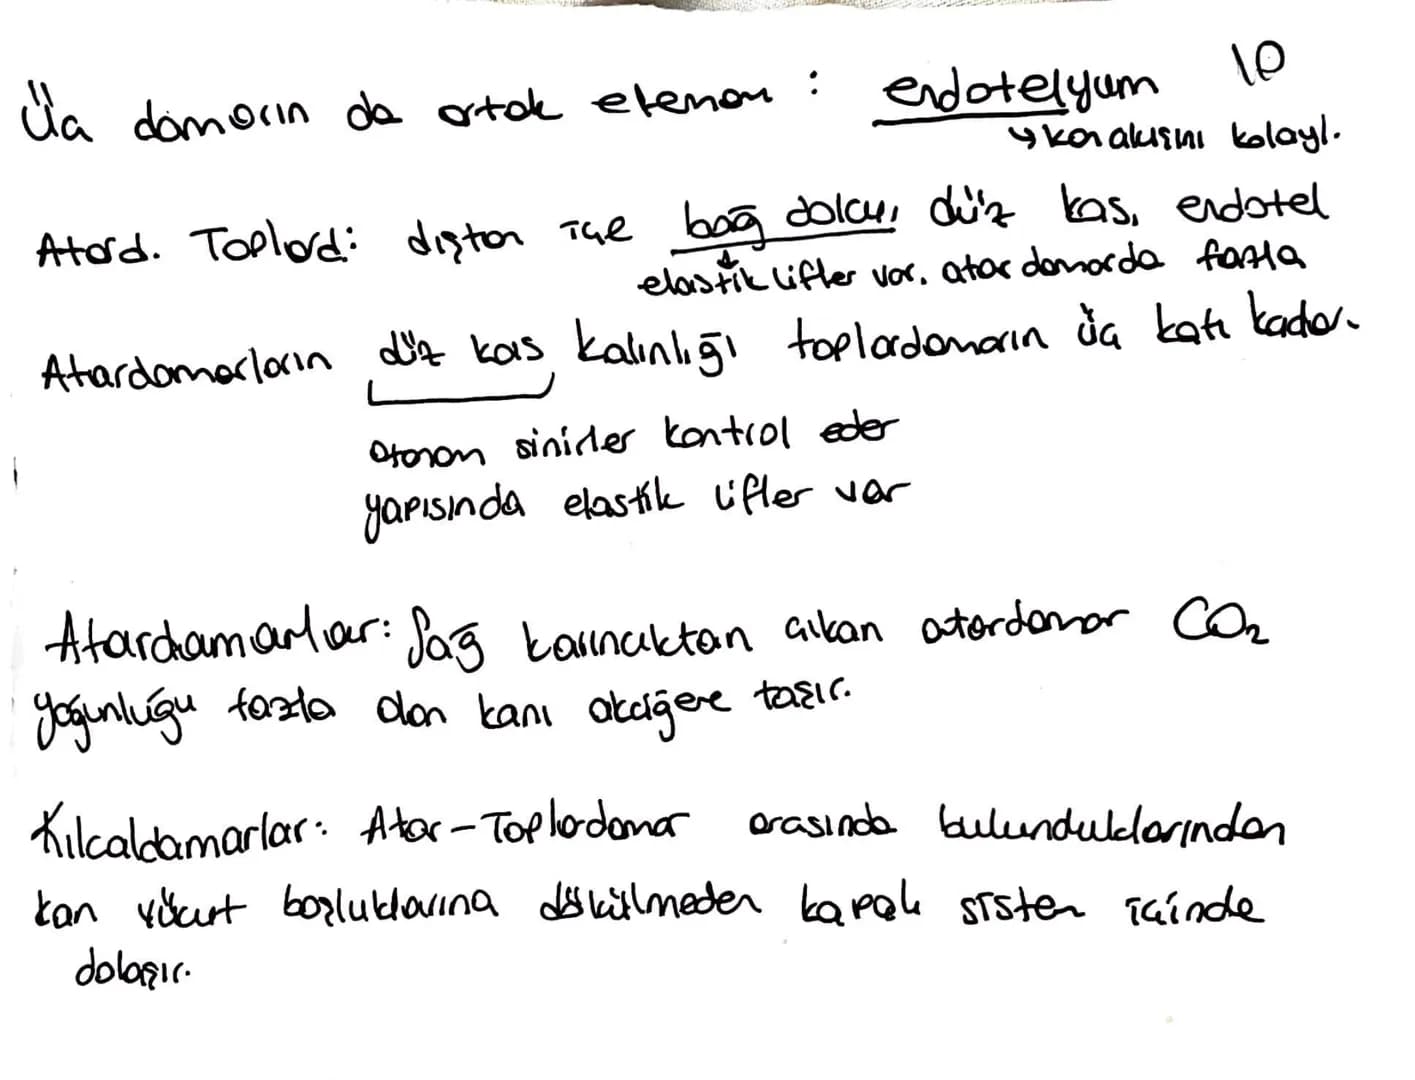 Üç damarın da ortak eleman : endotelyum 10
↳ kan akışını kolayl.
Atard. Toplard: dıştan içe bağ doku, düz kas, endotel
elastik lifler var. atar damarda fazla
Atardamarların düz kas kalınlığı toplardamarın üç katı kadar.
otonom sinirler kontrol eder
yapısında elastik lifler var
Atardamarlar: Sağ karıncıktan çıkan atardamar CO₂
yoğunluğu fazla olan kanı akciğere taşır.
Kılcaldamarlar: Atar-Toplardamar arasında bulunduklarından
kan vücut boşluklarına dökülmeden kapalı sistem içinde
dolaşır.